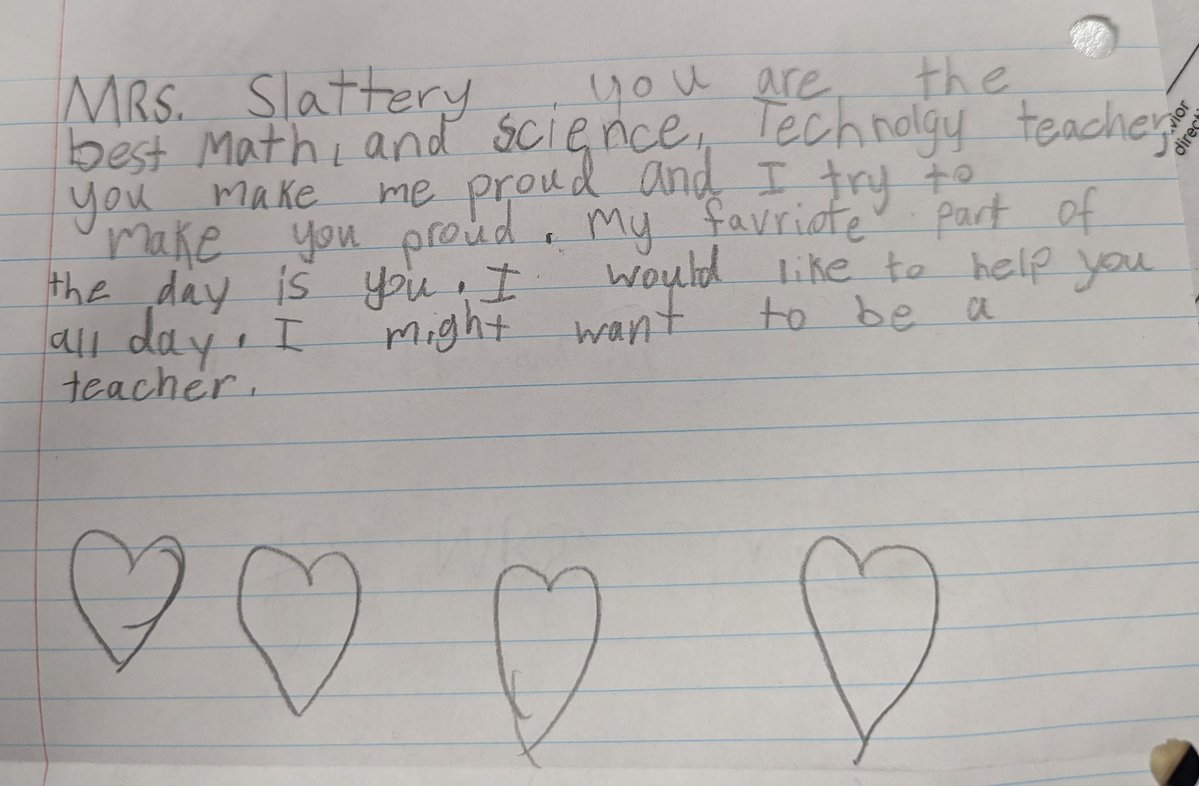 MRS. Slattery, you are the
best Math, and science, Technolgy teacher,
you make me proud and I try to
make you proud. my favriote part of
the day is you. I would like to help you
all day. I might want to be a
teacher.
vior
direct